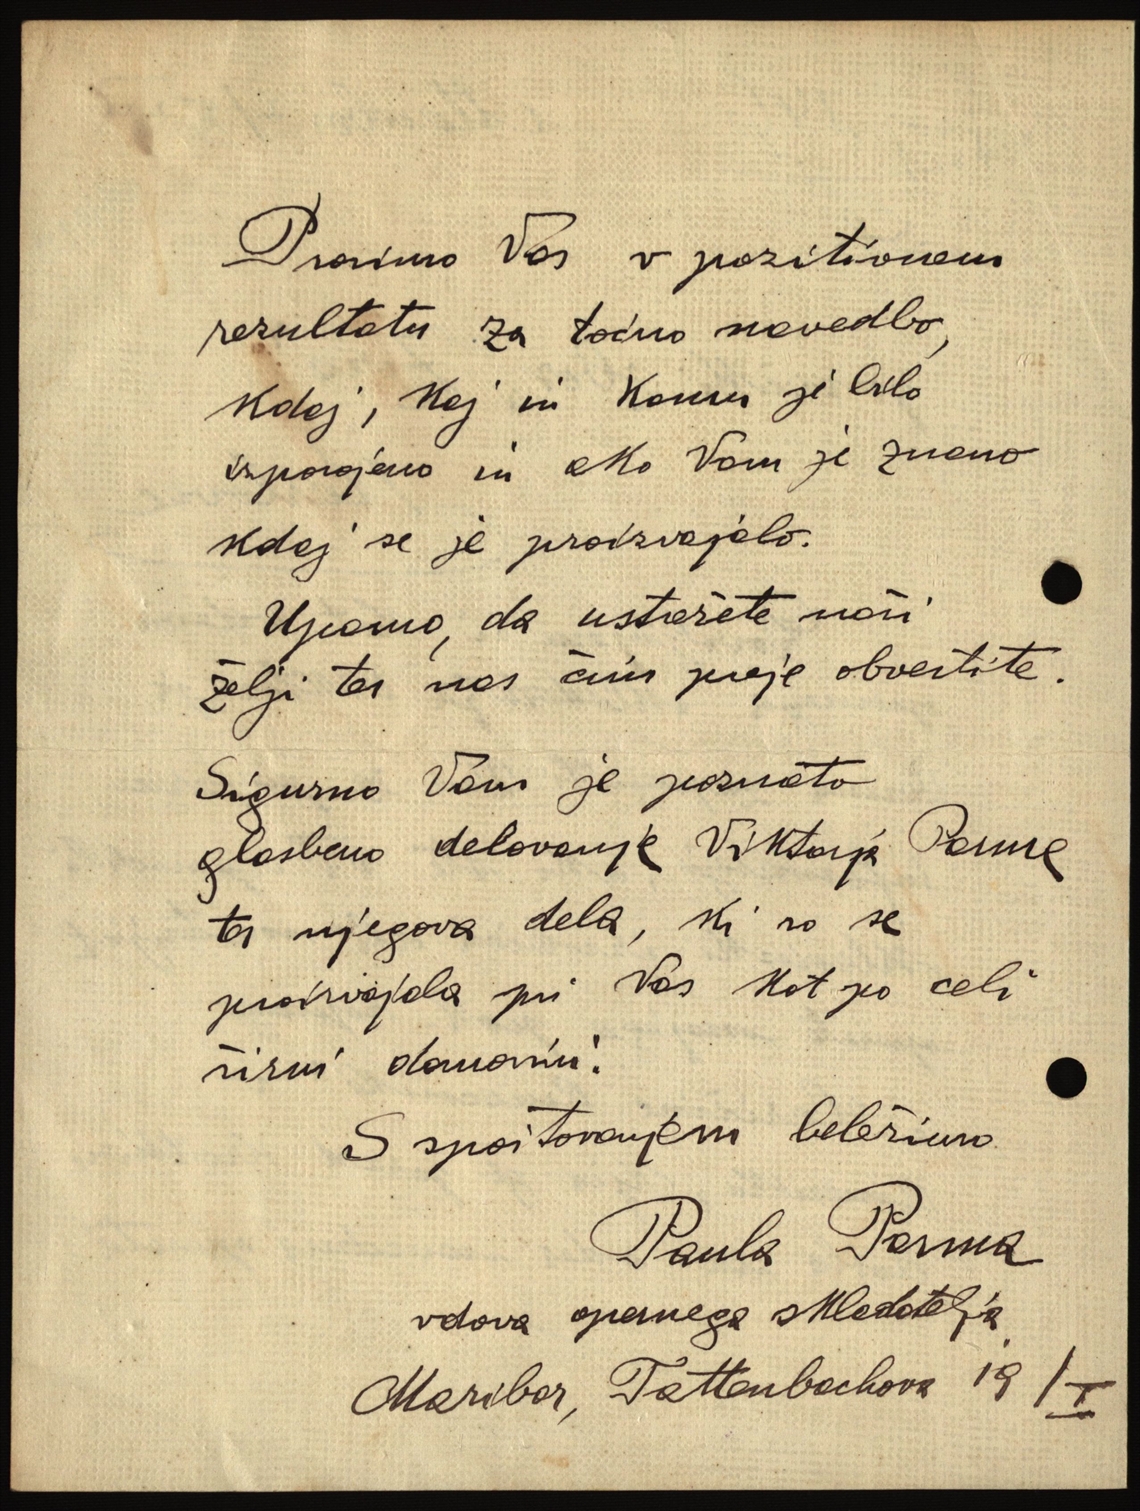 Prosimo Vas v pozitivnem
rezultatu za točno navedbo,
kdaj, kaj in komu je bilo
izposojeno in ako Vam je znano
kdaj se je proizvajalo.
Upamo, da ustrežete naši
želji ter nas čim preje obvestite.
Sigurno Vam je poznato
glasbeno delovanje Viktorja Parme
ter njegova dela, ki so se
proizvajala pri Vas kot po celi
širni domovini.
S spoštovanjem beležimo
Paula Parma
vdova opernega skladatelja
Maribor, Tattenbachova 19/I